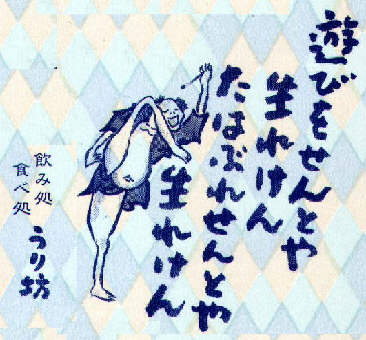 遊びをせんとや
生れけん
たはぶれせんとや
生れけん
飲み処
食べ処
うり坊